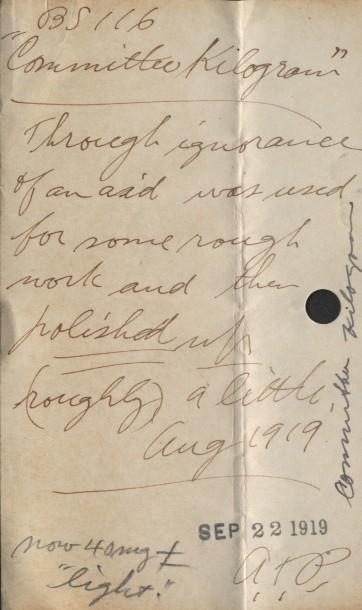 BS 116
"Committee Kilogram"
Through ignorance
of an aid was used
for some rough
work and then
polished up
(roughly) a little,
Aug 1919
Committee Kilogram
SEP 22 1919
now 40 mg ±
"light."